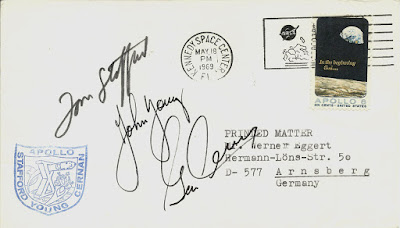 KENNEDY SPACE CENTER
MAY 18
PM
1969
FL
NASA
In the beginning
God...
APOLLO 8
SIX CENTS · UNITED STATES
Tom Stafford
John Young
Gene Cernan
APOLLO
STAFFORD YOUNG CERNAN
PRINTED MATTER
Werner Eggert
Hermann-Löns-Str. 50
D- 577 Arnsberg
Germany